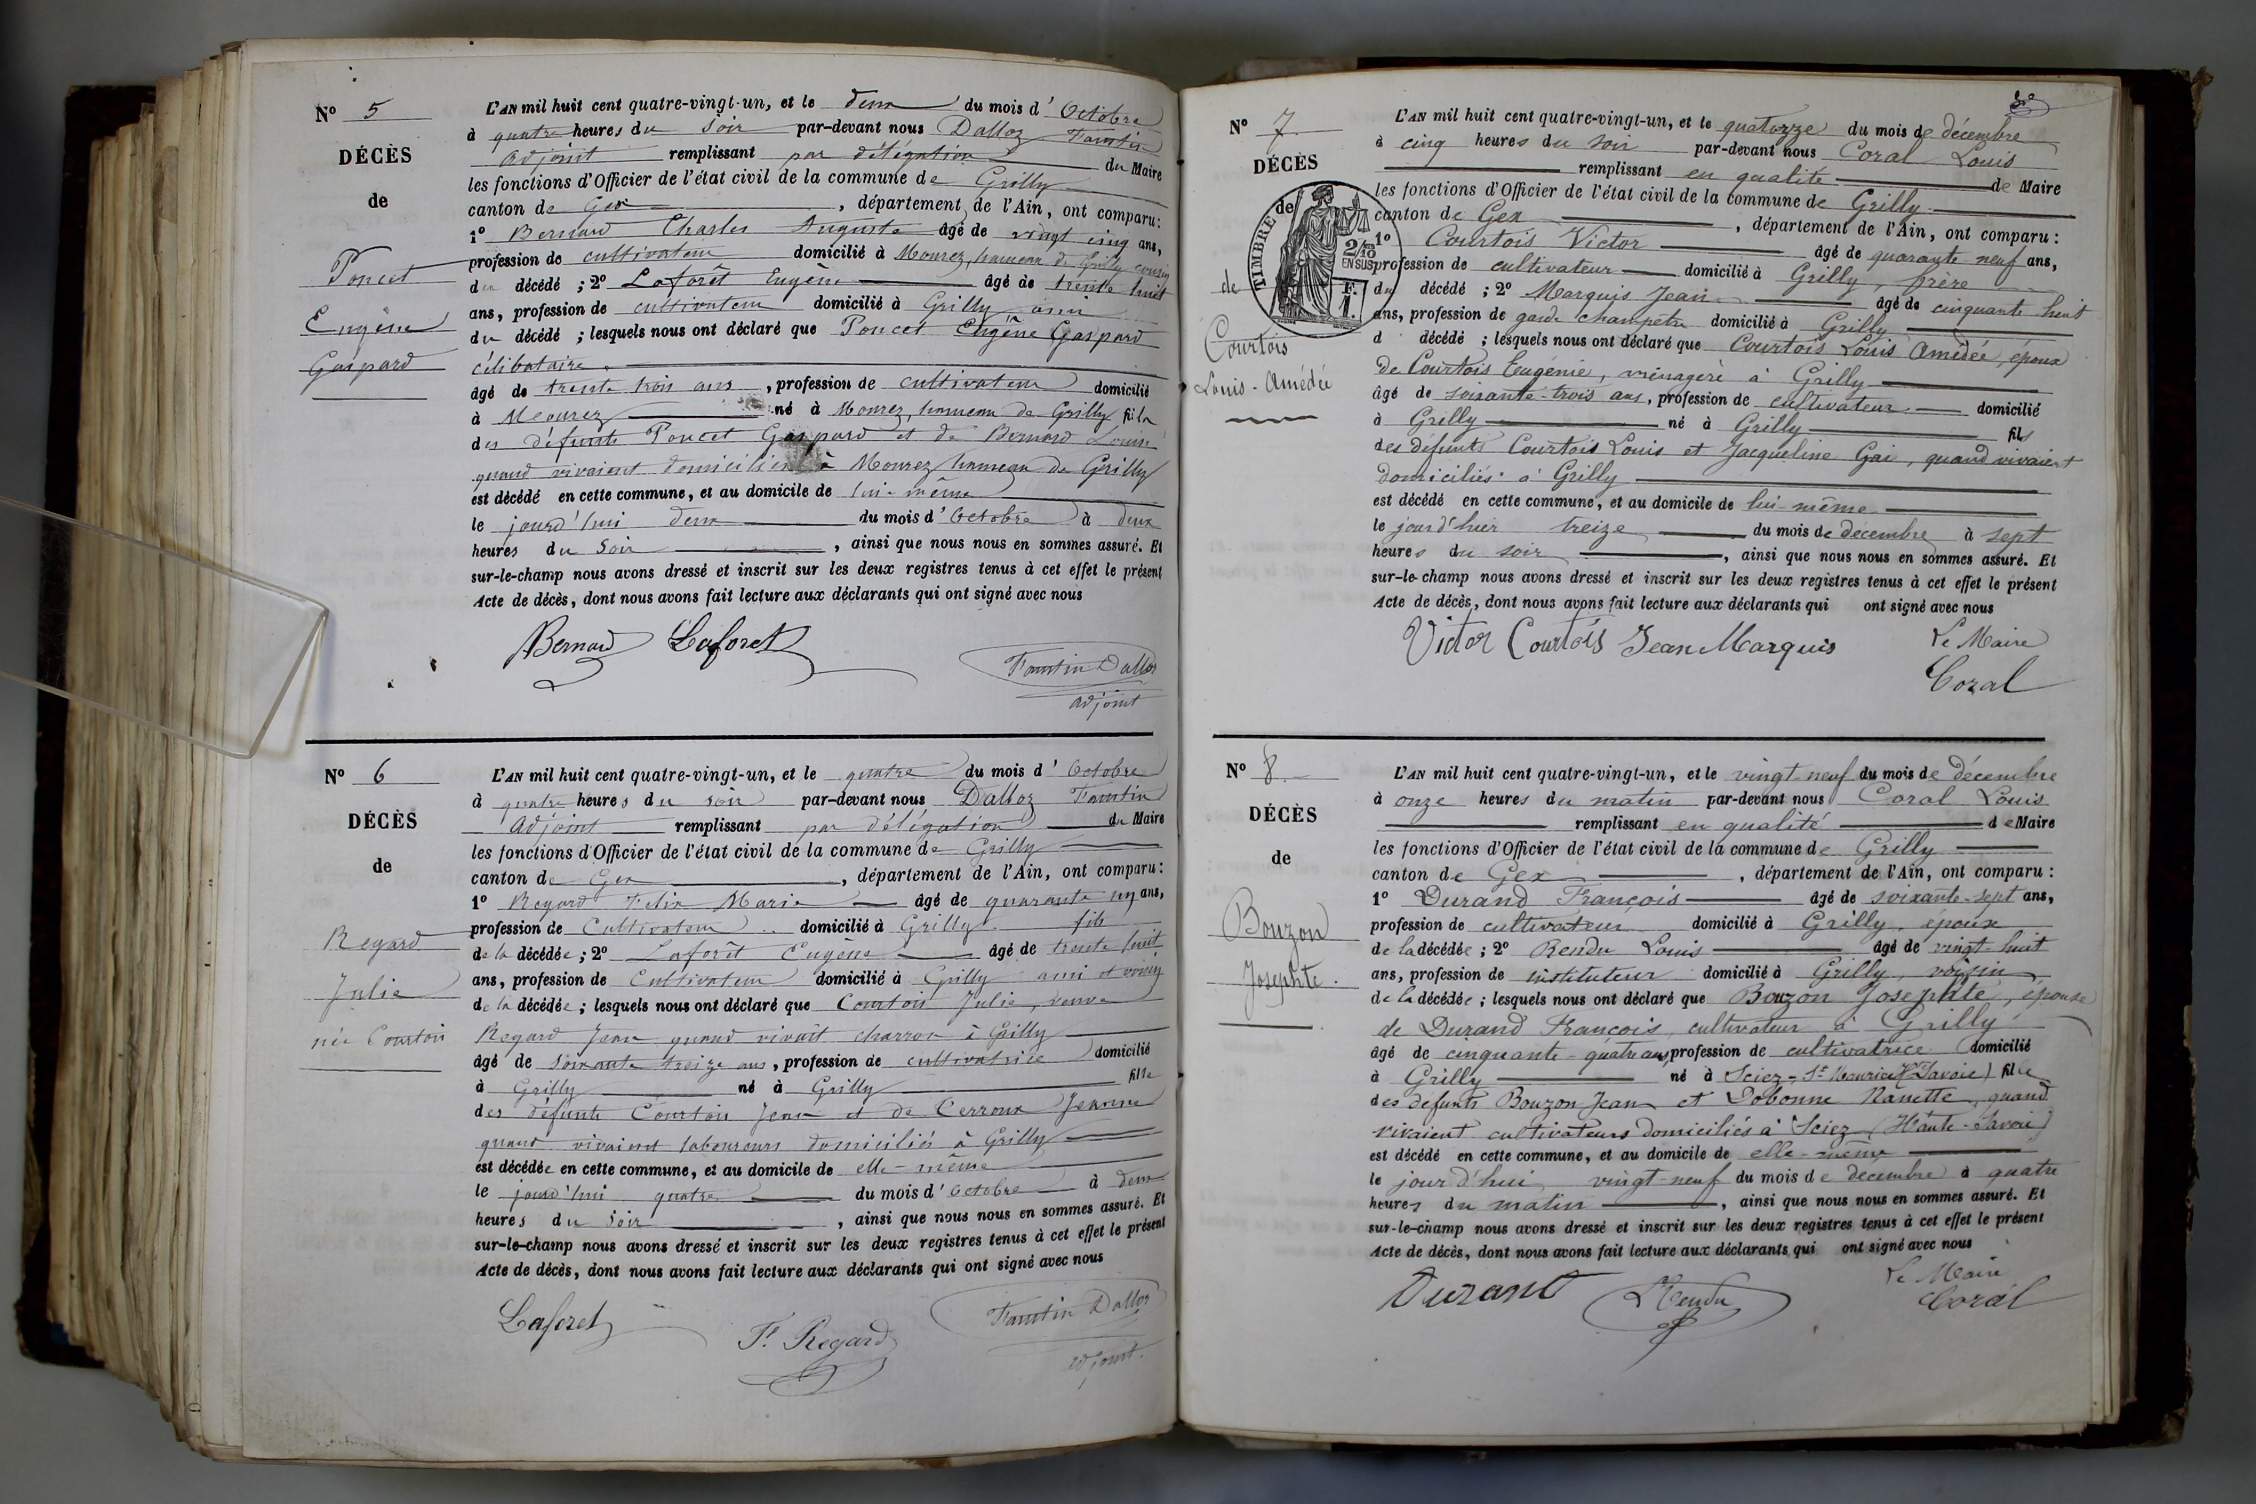 Nº 5
DÉCÈS
de
Poncet
Eugène
Gaspard
L'AN mil huit cent quatre-vingt-un, et le deux du mois d'Octobre
à quatre heures du soir par-devant nous Dalloz Faustin
adjoint remplissant par délégation du Maire
les fonctions d'Officier de l'état civil de la commune de Grilly
canton de Gex, département de l'Ain, ont comparu :
1º Bernard Charles Auguste âgé de vingt cinq ans,
profession de cultivateur domicilié à Mourez, hameau de Grilly cousin
du décédé ; 2º Laforêt Eugène âgé de trente huit
ans, profession de cultivateur domicilié à Grilly ami
du décédé ; lesquels nous ont déclaré que Poncet Eugène Gaspard
célibataire.
âgé de trente trois ans, profession de cultivateur domicilié
à Mourez né à Mourez, hameau de Grilly fils
des défunts Poncet Gaspard et de Bernard Louise
quand vivaient domiciliés à Mourez hameau de Grilly
est décédé en cette commune, et au domicile de lui-même
le jourd'hui deux du mois d'Octobre à deux
heures du soir, ainsi que nous nous en sommes assuré. Et
sur-le-champ nous avons dressé et inscrit sur les deux registres tenus à cet effet le présent
Acte de décès, dont nous avons fait lecture aux déclarants qui ont signé avec nous
Bernard Laforet
Faustin Dalloz
adjoint
Nº 6
DÉCÈS
de
Regard
Julie
née Courtois
L'AN mil huit cent quatre-vingt-un, et le quatre du mois d'Octobre
à quatre heures du soir par-devant nous Dalloz Faustin
Adjoint remplissant par délégation du Maire
les fonctions d'Officier de l'état civil de la commune de Grilly
canton de Gex, département de l'Ain, ont comparu :
1º Regard Felix Marie âgé de quarante un ans,
profession de Cultivateur domicilié à Grilly fils
de la décédée ; 2º Laforêt Eugène âgé de trente huit
ans, profession de Cultivateur domicilié à Grilly ami et voisin
de la décédée ; lesquels nous ont déclaré que Courtois Julie, veuve
Regard Jean quand vivait charron à Grilly
âgé de soixante treize ans, profession de cultivatrice domicilié
à Grilly né à Grilly fille
des défunts Courtois Jean et de Cerroux Jeanne
quand vivaient laboureurs domiciliés à Grilly
est décédée en cette commune, et au domicile de elle-même
le jourd'hui quatre du mois d'Octobre à deux
heures du soir, ainsi que nous nous en sommes assuré. Et
sur-le-champ nous avons dressé et inscrit sur les deux registres tenus à cet effet le présent
Acte de décès, dont nous avons fait lecture aux déclarants qui ont signé avec nous
Laforet
F. Regard
Faustin Dalloz
adjoint.
Nº 7
DÉCÈS
de
TIMBRE
2/10
EN SUS
F.
1.
de
Courtois
Louis-Amédée
L'AN mil huit cent quatre-vingt-un, et le quatorze du mois de décembre
à cinq heures du soir par-devant nous Coral Louis
remplissant en qualité de Maire
les fonctions d'Officier de l'état civil de la commune de Grilly
canton de Gex, département de l'Ain, ont comparu :
1º Courtois Victor âgé de quarante neuf ans,
profession de cultivateur domicilié à Grilly, frère
du décédé ; 2º Marquis Jean âgé de cinquante huit
ans, profession de garde champêtre domicilié à Grilly
d décédé ; lesquels nous ont déclaré que Courtois Louis Amédée, époux
de Courtois Eugénie, ménagère à Grilly
âgé de soixante-trois ans, profession de cultivateur domicilié
à Grilly né à Grilly fils
des défunts Courtois Louis et Jacqueline Gai, quand vivaient
domiciliés à Grilly
est décédé en cette commune, et au domicile de lui-même
le jour d'hier treize du mois de décembre à sept
heures du soir, ainsi que nous nous en sommes assuré. Et
sur-le-champ nous avons dressé et inscrit sur les deux registres tenus à cet effet le présent
Acte de décès, dont nous avons fait lecture aux déclarants qui ont signé avec nous
Victor Courtois Jean Marquis
Le Maire
Coral
Nº 8
DÉCÈS
de
Bouzon
Josephte.
L'AN mil huit cent quatre-vingt-un, et le vingt neuf du mois de décembre
à onze heures du matin par-devant nous Coral Louis
remplissant en qualité de Maire
les fonctions d'Officier de l'état civil de la commune de Grilly
canton de Gex, département de l'Ain, ont comparu :
1º Durand François âgé de soixante-sept ans,
profession de cultivateur domicilié à Grilly, époux
de la décédée ; 2º Rendu Louis âgé de vingt-huit
ans, profession de instituteur domicilié à Grilly, voisin
de la décédée ; lesquels nous ont déclaré que Bouzon Josephte, épouse
de Durand François, cultivateur à Grilly
âgé de cinquante-quatre ans, profession de cultivatrice domicilié
à Grilly né à Sciez-St Maurice (Hte Savoie) fille
des défunts Bouzon Jean et Dobonne Nanette, quand
vivaient cultivateurs domiciliés à Sciez (Haute-Savoie)
est décédé en cette commune, et au domicile de elle-même
le jour d'hui vingt-neuf du mois de décembre à quatre
heures du matin, ainsi que nous nous en sommes assuré. Et
sur-le-champ nous avons dressé et inscrit sur les deux registres tenus à cet effet le présent
Acte de décès, dont nous avons fait lecture aux déclarants qui ont signé avec nous
Durand
LRendu
Le Maire
Coral